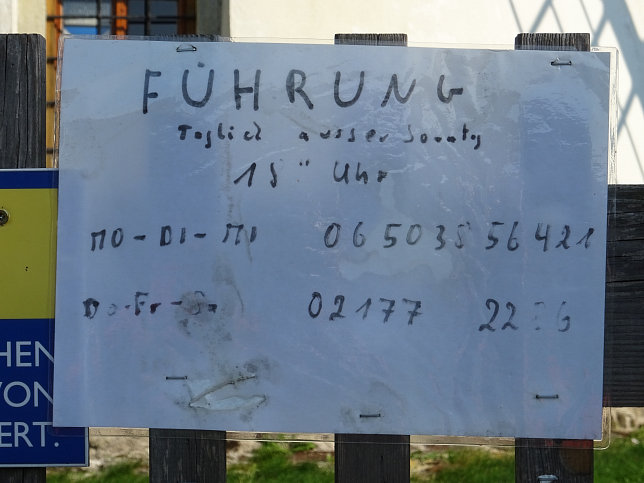 FÜHRUNG
Täglich ausser Sonntag
15°° Uhr
MO-DI-MI 06503556421
Do-Fr-Sa 02177
HEN
VON
ERT.